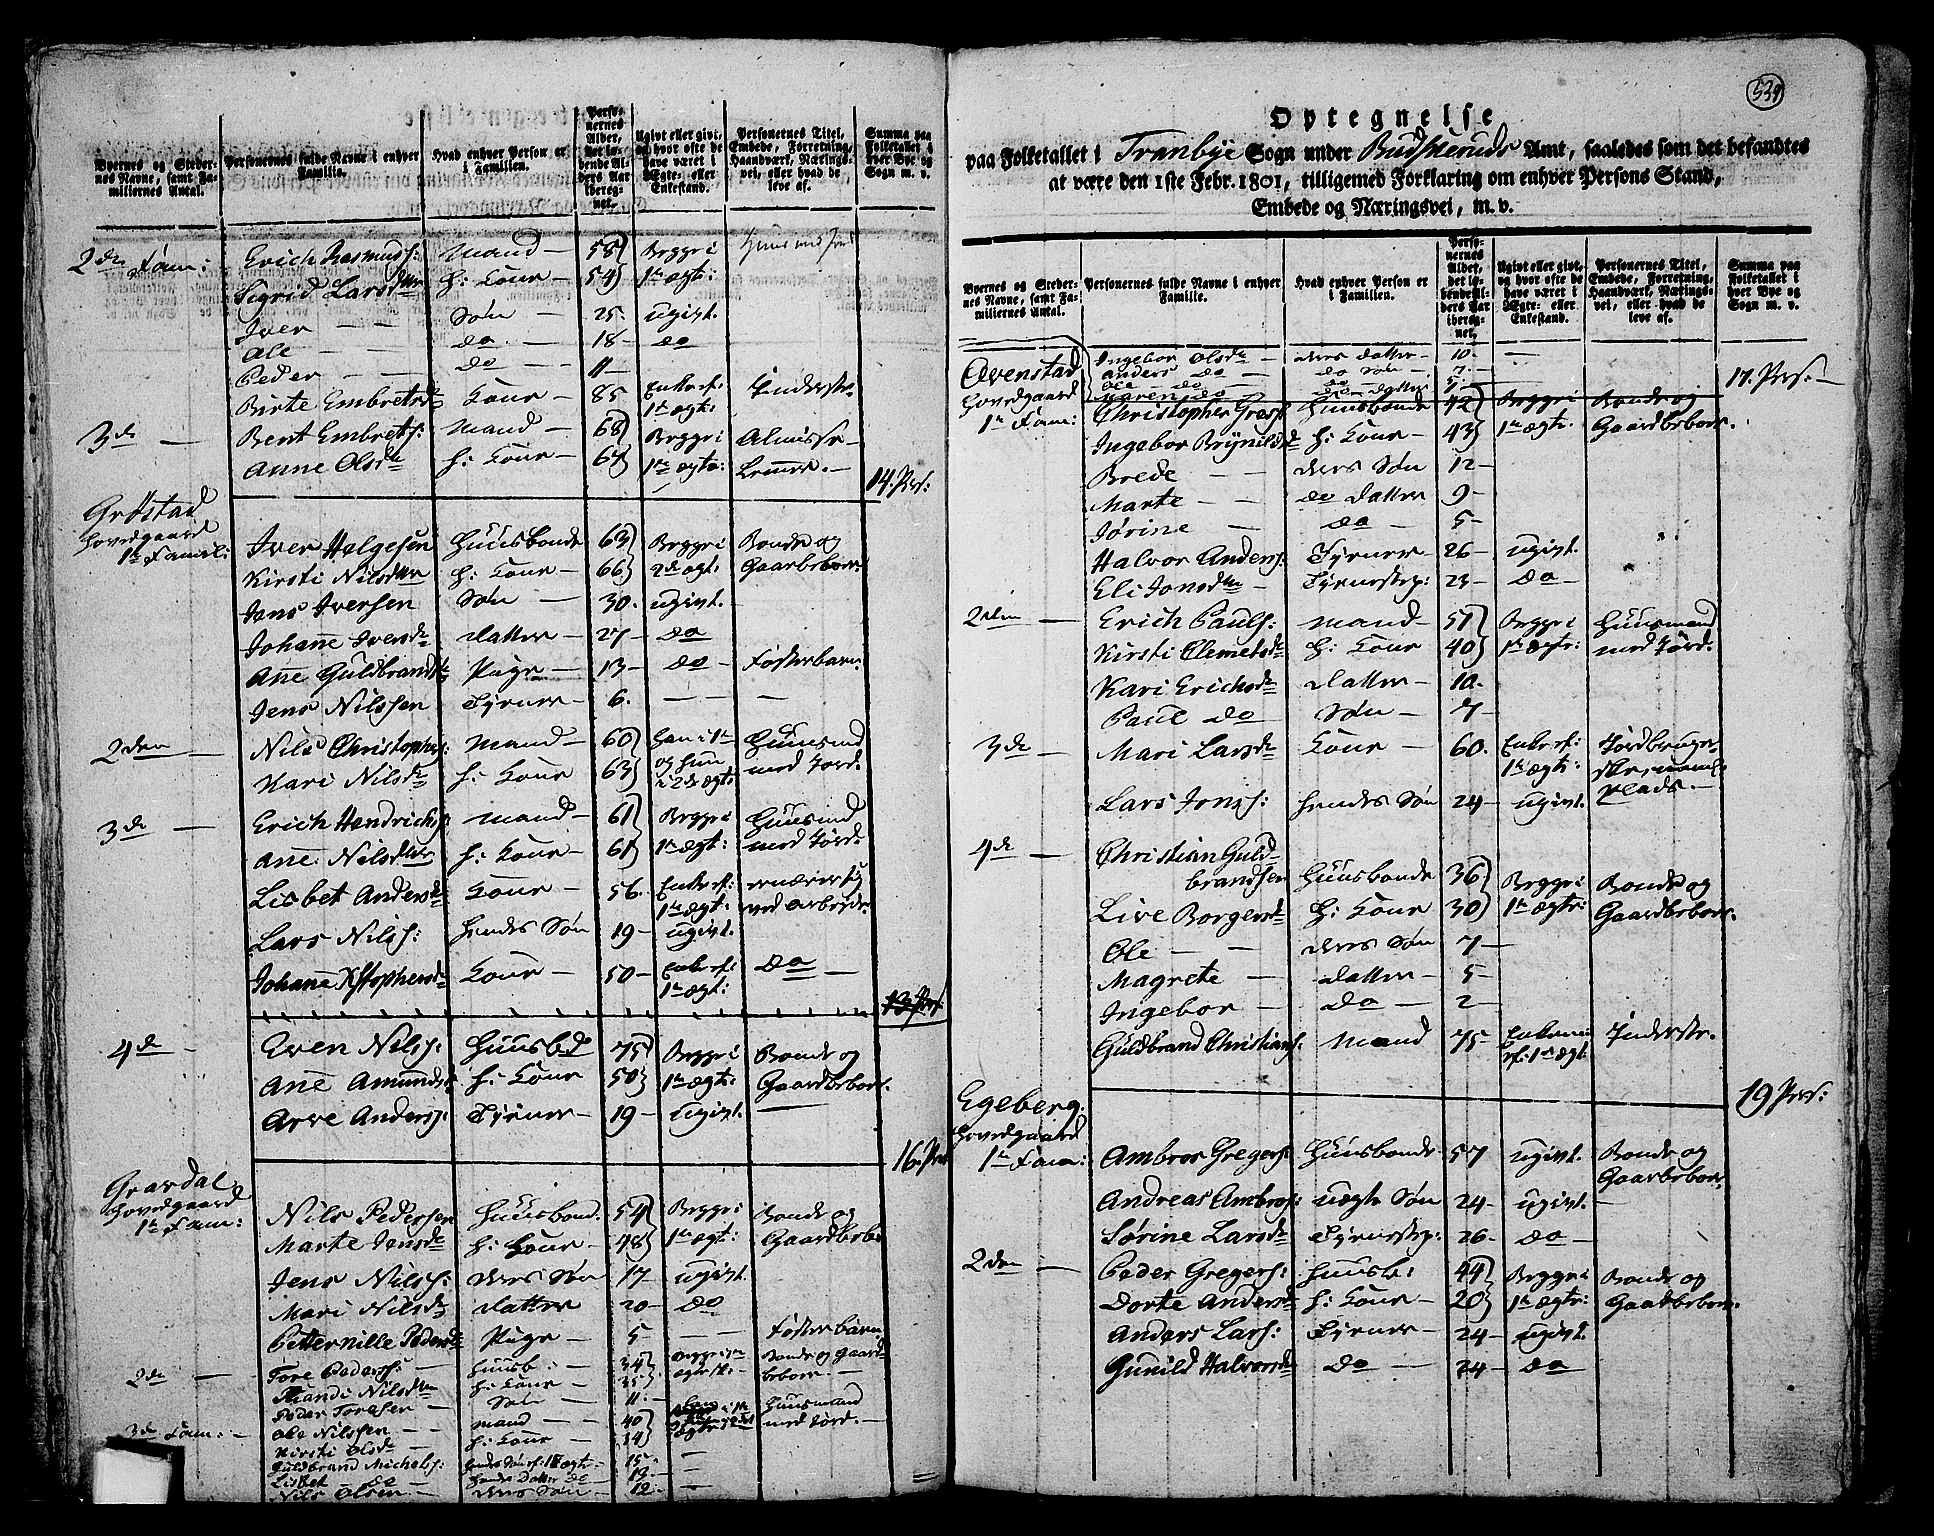 Byernes og Steder- Personernes fulde Navne i enhver Hvad enhver Person er Perso-
nernes
Alder,
det lø-
bende Al-
ders Aar
ibereg-
net.
Ugivt eller givt,
og hvor ofte de
have været i
Ægte- eller
Enkestand.
Personernes Titel,
Embede, Forretning,
Haandværk, Nærings-
vei, eller hvad de
leve af.
Summa paa
Folketallet i
hver Bye og
Sogn m. v.
nes Navne, samt Fa-
miliernes Antal.
Familie.
i Familien.
2den Fam: Erich Rasmuss: Mand 58 Begge i
Sigrid Larsdtter h: Kone 54 1te ægt:
Iver Søn 25 ugivt.
Ole do 18 do
Peder do 11
Birte Embretsd Kone 85 Enke ef: Inderste
1te ægt:
3de Bent Embrets: Mand 68 Begge i Almisse
Anne Olsdtr h: Kone 67 1te ægte: Lemer.
14. Pers:
Grøstad
Hovedgaard
1te Famil: Iver Helgesen Huusbonde 63 Begge i Bonde og
Kirsti Nilsdtter h: Kone 66 2det ægt: Gaardbeboer
Jens Iversen Søn 30. ugivt.
Johanne Iversd Datter 27 do
Ane Guldbrandsd Pige 13 do Fosterbarn
Jens Nilssen Tyener 6.
2den Nils Christophers: Mand 60 han i 1te Huusmd
Kari Nilsd h: Kone 63 og hun med Jord.
i 2det ægt:
3de Erich Hendrichs: Mand 61 Begge i Huusmd
Ane Nilsdtter h: Kone 61 1te ægt: med Jord.
Lisbet Andersd Kone 56 Enke ef: ernærer sig
1te ægt: ved Arbeyde.
Lars Nils: hendes Søn 19 ugivt.
Johane Kstophersd Kone 50 Enke ef: do
1te ægt:
13 Pers:
4de Even Nils: Huusbd 75 Begge i Bonde og
Ane Amundsd h: Kone 50 1te ægt: Gaardbeboer.
Arve Anders: Tyener 19 ugivt.
16. Pers
Gravdal
Hovedgaard
1te Fam: Nils Pedersen Huusbond. 54 Begge i Bonde og
Marte Jensd h: Kone 48 1te ægt: Gaardbeboer
Jens Nils: deres Søn 17 ugivt
Mari Nilsd Datter 20 do
Petternille Pedersd Pige 5 Fosterbarn
2de Tore Peders: Huusb: 34 Begge i 1te Bonde og Gaard-
Randi Nilsdtr h: Kone 35 beboer.
Peder Toresen Søn 11.
3de Fam: Ole Nilssen Mand 40 Huusmand
Kirsti Olsd h: Kone 34 med Jord.
Guldbrand Michels: 15
Lisbet do hendes Datter do 13.
Nils Olsen deres Søn 12
539
Optegnelse
paa Folketallet i Tranbye Sogn under Budskeruds Amt, saaledes som det befandtes
at være den 1ste Febr. 1801, tilligemed Forklaring om enhver Persons Stand,
Embede og Næringsvei, m. v.
Byernes og Steder-
nes Navne, samt Fa-
miliernes Antal.
Personernes fulde Navne i enhver
Familie.
Hvad enhver Person er
i Familien.
Perso-
nernes
Alder,
det lø-
bende Al-
ders Aar
ibereg-
net.
Ugivt eller givt,
og hvor ofte de
have været i
Ægte- eller
Enkestand.
Personernes Titel,
Embede, Forretning,
Haandværk, Nærings-
vei, eller hvad de
leve af.
Summa paa
Folketallet i
hver Bye og
Sogn m. v.
Ingebor Olsd deres Datter 10.
Anders do do Søn 7.
Ole do do
Karen do do Datter
17. Pers.
Ovenstad
Hovedgaard
1te Fam: Christopher Huusbonde 42 Begge i Bonde og
Ingebor Brynilsd h: Kone 43 1te ægt. Gaardbeboer.
Brede deres Søn 12
Marte do Datter 9
Jørine do 5
Halvor Anders: Tyener 26 ugivt.
Eli Jonsdtr Tyenestep: 23 do
2den Erich Pauls: Mand 51 Begge i Huusmand
Kirsti Clemetsd h: Kone 40 1te ægt: med Jord.
Kari Erichsd Datter 10.
Paul do Søn 7
3de Mari Larsd Kone 60. Enke ef: Jordbruger
1te ægt:
plads.
Lars Jons: hendes Søn 24 ugivt.
4de Christian Guld-
brandsen Huusbonde 36 Begge i Bonde og
Live Borgersd h: Kone 30 1te ægt: Gaardbeboer.
Ole deres Søn 7
Magrete Datter 5
Ingebor do 2
Guldbrand Christians: Mand 75 Enkemand Inderste.
ef: 1te ægt
19 Pers:
Egeberg.
Hovedgaard
1te Fam: Ambror Gregers: Huusbonde 57 ugivt. Bonde og
Gaardbeboer.
Andreas Ambros: uægte Søn 24 ugivt.
Sørine Larsd Tyenestep: 26 do
2den Peder Gregers: Huusb: 44 Begge i Bonde og
Dorte Andersd h: Kone 20 1te ægt: Gaardbeboer.
Anders Lars: Tyener 24 ugivt
Gunild Halvorsd do 24 do